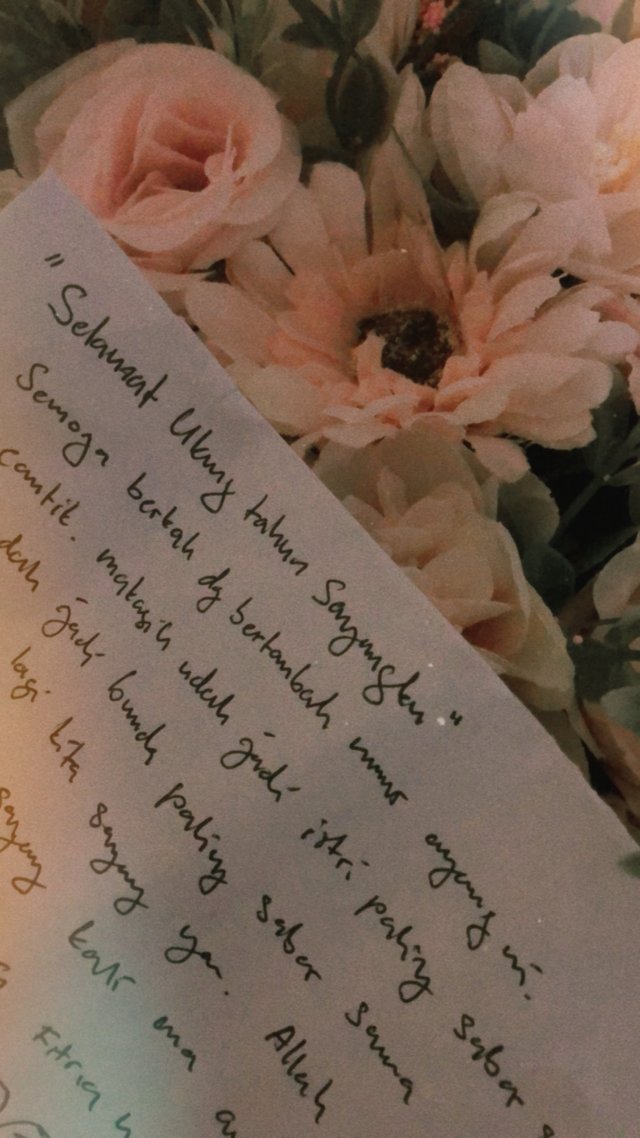 "Selamat Ulang tahun Sayangku"
Semoga berkah dg bertambah umur ayang ni.
cantik. makasih udah jadi istri paling sabar
dah jadi bunda paling sabar sama
lagi kita sayang ya. Allah
sayang kali ma
Fitria